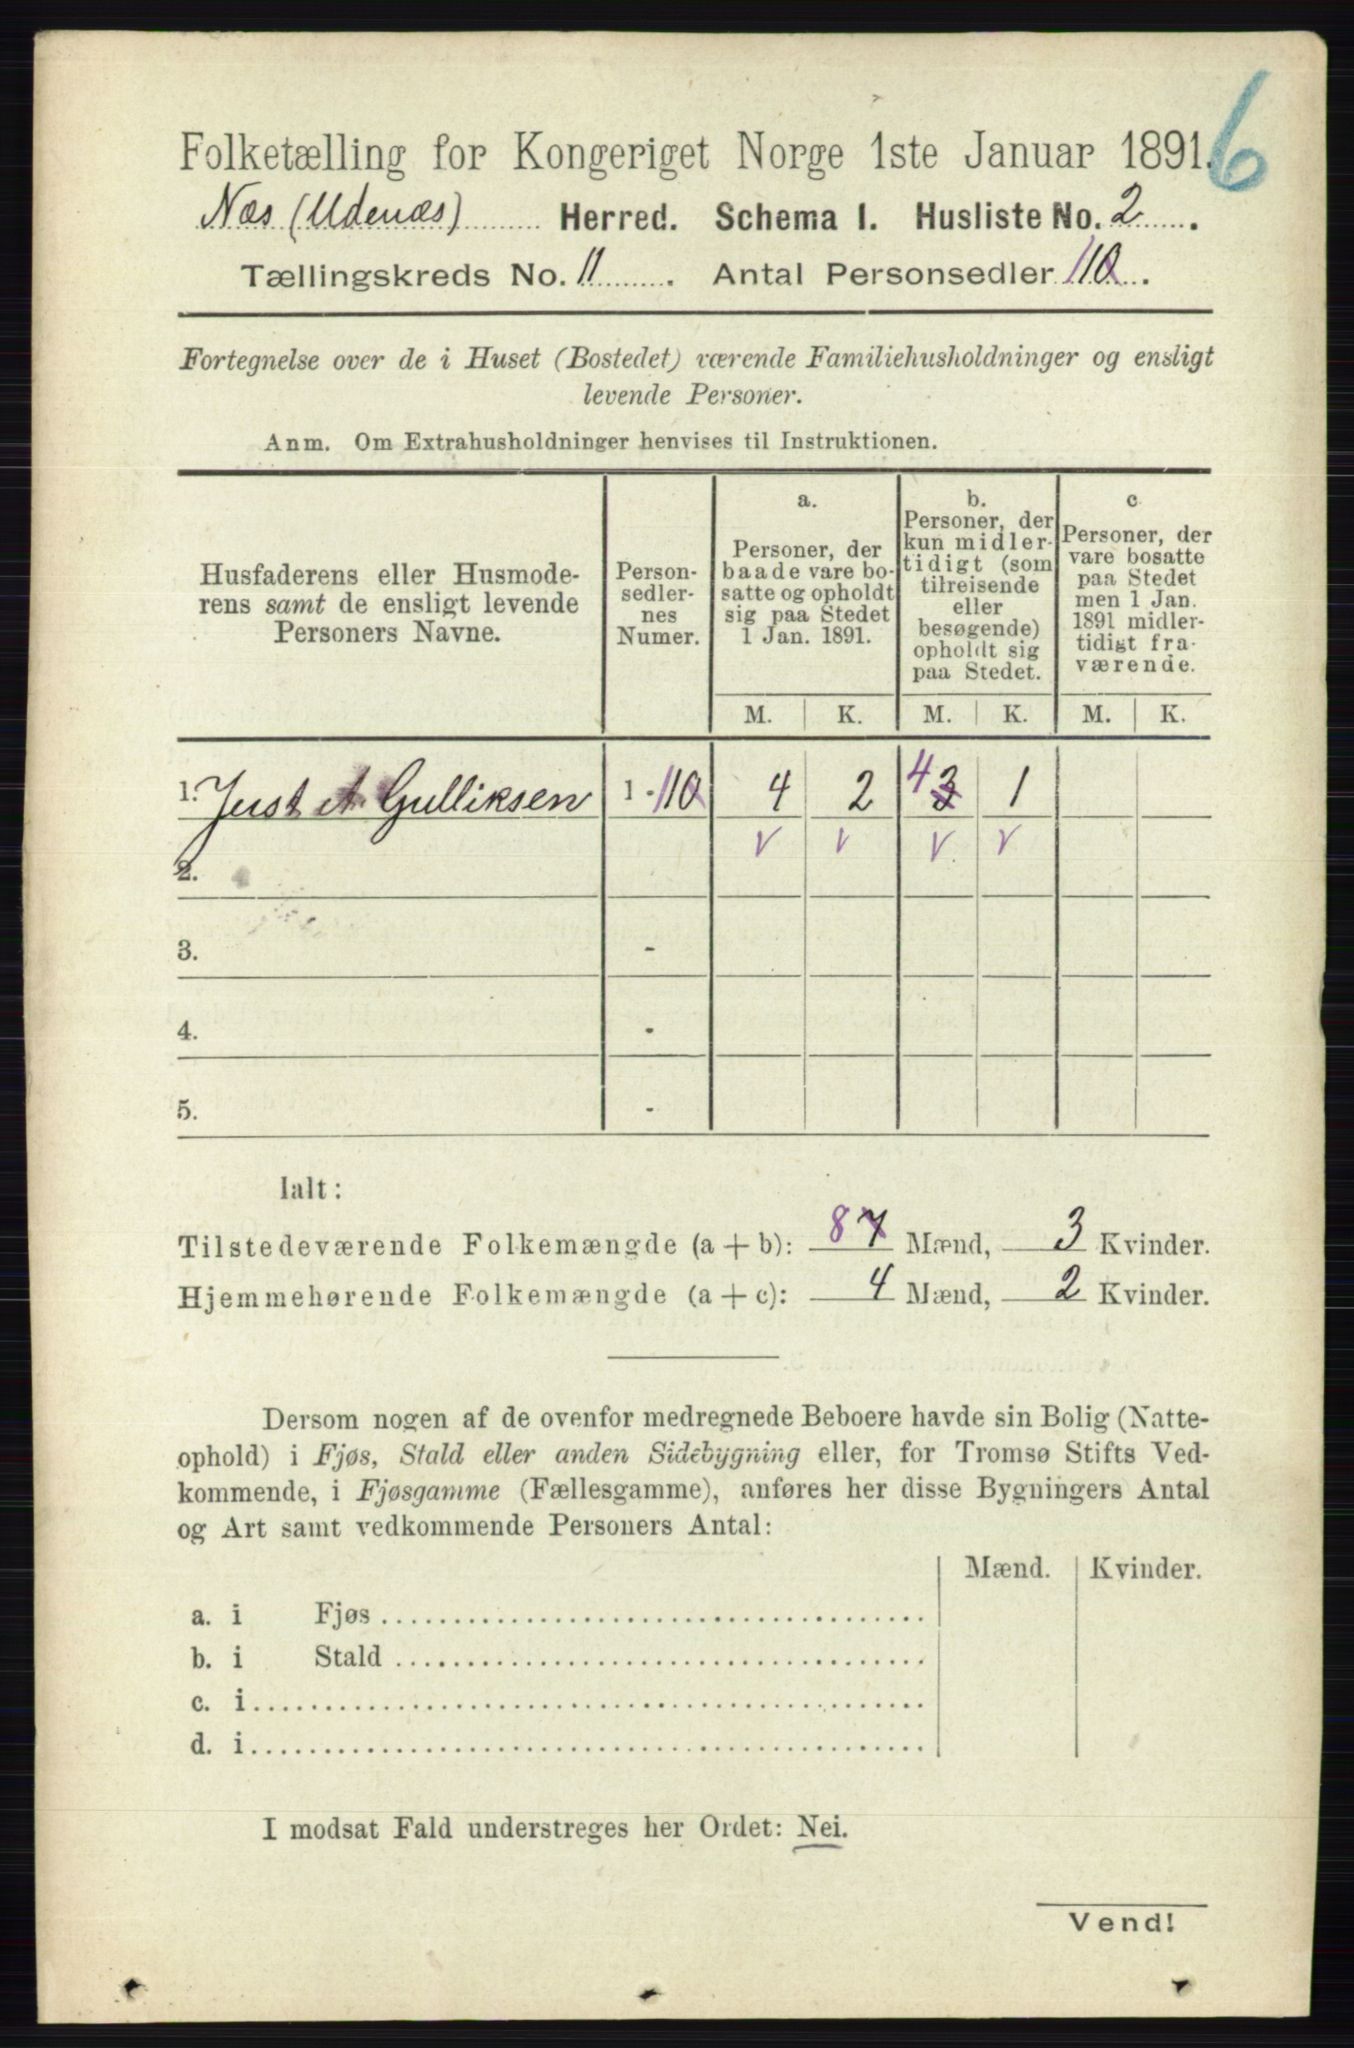 6
Folketælling for Kongeriget Norge 1ste Januar 1891.
Næs (Udenæs) Herred. Schema I. Husliste No. 2.
Tællingskreds No. 11. Antal Personsedler 110.
Fortegnelse over de i Huset (Bostedet) værende Familiehusholdninger og ensligt
levende Personer.
Anm. Om Extrahusholdninger henvises til Instruktionen.
Husfaderens eller Husmode-
rens samt de ensligt levende
Personers Navne.
Person-
sedler-
nes
Numer.
a.
Personer, der
baade vare bo-
satte og opholdt
sig paa Stedet
1 Jan. 1891.
b.
Personer, der
kun midler-
tidigt (som
tilreisende
eller
besøgende)
opholdt sig
paa Stedet.
c
Personer, der
vare bosatte
paa Stedet
men 1 Jan.
1891 midler-
tidigt fra-
værende.
M. K. M. K. M. K.
1. Just A Gulliksen 1 - 110 4 2 4 3 1
v v v v
2.
3. -
4. -
5. -
Ialt:
Tilstedeværende Folkemængde (a + b): 8 7 Mænd, 3 Kvinder.
Hjemmehørende Folkemængde (a + c): 4 Mænd, 2 Kvinder.
Dersom nogen af de ovenfor medregnede Beboere havde sin Bolig (Natte-
ophold) i Fjøs, Stald eller anden Sidebygning eller, for Tromsø Stifts Ved-
kommende, i Fjøsgamme (Fællesgamme), anføres her disse Bygningers Antal
og Art samt vedkommende Personers Antal:
Mænd. Kvinder.
a. i Fjøs
b. i Stald
c. i
d. i
I modsat Fald understreges her Ordet: Nei.
Vend!